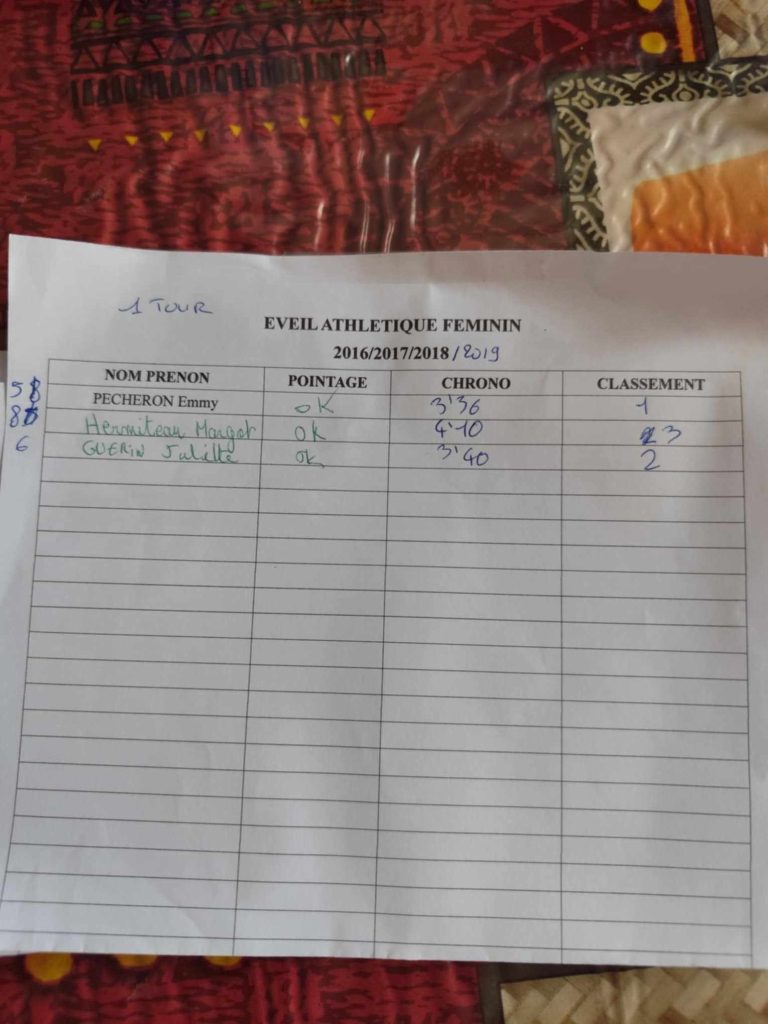 1 TOUR
EVEIL ATHLETIQUE FEMININ
2016/2017/2018/2019
NOM PRENON POINTAGE CHRONO CLASSEMENT
5 PECHERON Emmy OK 3'36 1
8 Hermiteau Margot OK 4'10 3
6 GUERIN Juliette OK 3'40 2